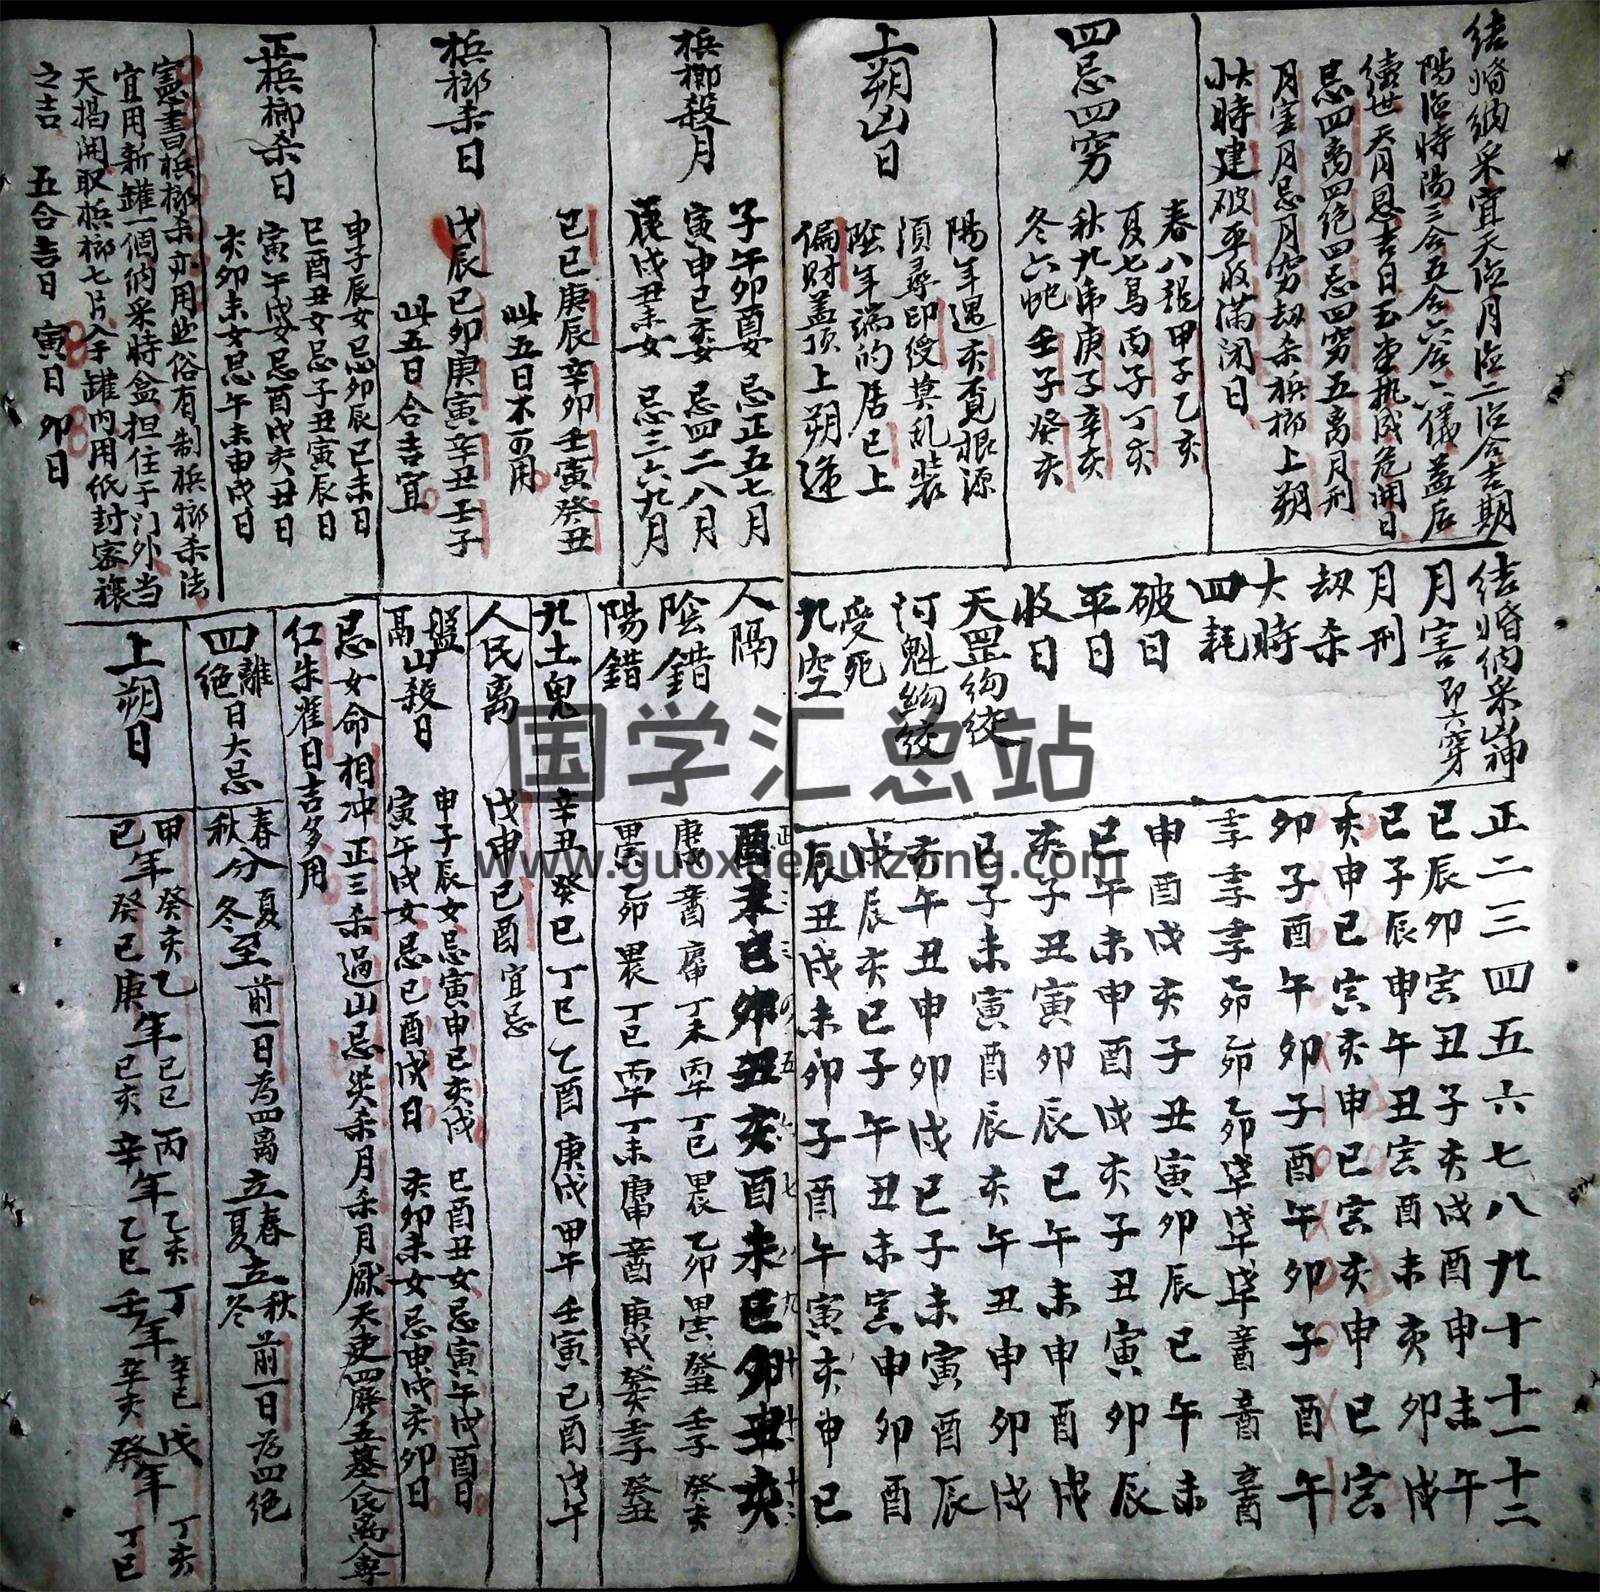 结婚纳采宜天德月德二德合吉期
陽德時陽三合五合六合六儀益后
續世天月恩吉日玉堂执成危開日
忌四离四绝四忌四穷五离月刑
月害月忌月穷劫杀梹榔上朔
大時建破平收满闭日
四忌四穷
春八龍甲子乙亥
夏七鳥丙子丁亥
秋九虎庚子辛亥
冬六蛇壬子癸亥
上朔凶日
陽年遇亥覓根源
須尋印绶莫乱装
陰年端的居巳上
偏财盖顶上朔逢
梹榔殺月
子午卯酉女 忌正五七月
寅申巳亥女 忌四二八月
辰戌丑未女 忌三六九月
梹榔杀日
己巳庚辰辛卯壬寅癸丑
此五日不可用
戊辰己卯庚寅辛丑壬子
此五日合吉宜
正梹榔杀日
申子辰女忌卯辰巳未日
巳酉丑女忌子丑寅辰日
寅午戌女忌酉戌亥丑日
亥卯未女忌午未申戌日
憲書梹榔杀亦用此俗有制梹榔杀法
宜用新罐一個纳采時盒担住于门外当
天揭開取梹榔七片令于罐内用纸封密禳
之吉 五合吉日 寅日 卯日
结婚纳采凶神
月害即六穿
月刑
劫杀
大時
四耗
破日
平日
收日
天罡勾绞
河魁勾绞
受死
九空
正二三四五六七八九十十一十二
巳辰卯寅丑子亥戌酉申未午
巳子辰申午丑寅酉未亥卯戌
亥申巳寅亥申巳寅亥申巳寅
卯子酉午卯子酉午卯子酉午
壬子壬子壬子乙卯乙卯乙卯戊午戊午戊午辛酉辛酉辛酉
申酉戌亥子丑寅卯辰巳午未
巳午未申酉戌亥子丑寅卯辰
亥子丑寅卯辰巳午未申酉戌
巳子未寅酉辰亥午丑申卯戌
亥午丑申卯戌巳子未寅酉辰
戌辰亥巳子午丑未寅申卯酉
辰丑戌未卯子酉午寅亥申巳
人隔
陰錯
陽錯
正二三四五六七八九十十一十二
酉未巳卯丑亥酉未巳卯丑亥
庚戌辛酉庚申丁未丙午丁巳甲辰乙卯甲寅癸丑壬子癸亥
甲寅乙卯甲辰丁巳丙午丁未庚申辛酉庚戌癸亥壬子癸丑
九土鬼
辛丑癸巳丁巳乙酉庚戌甲午壬寅己酉戊午
人民离
戊申己酉宜忌
盤
鬲山殺日
申子辰女忌寅申巳亥戌 巳酉丑女忌寅午戌酉日
寅午戌女忌巳酉戌日 亥卯未女忌申戌亥卯日
忌女命相冲正三杀過山忌災杀月杀月厭天吏四廢五墓人民离合尊
仁朱雀日吉多用
四離
绝日大忌
春
秋分
夏
冬至前一日為四离
立春
夏立秋
冬前一日為四绝
上朔日
甲年癸亥乙年己巳丙年乙亥丁年辛巳戊年丁亥
己年癸巳庚年己亥辛年乙巳壬年辛亥癸年丁巳
国学汇总站
www.guoxuehuizong.com